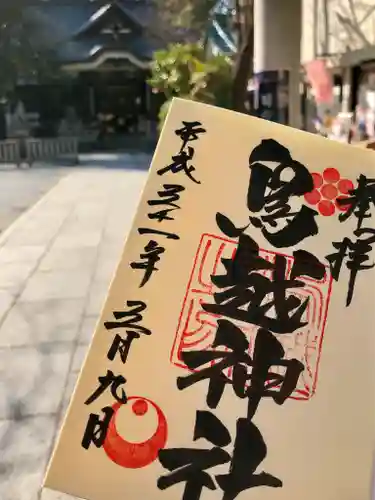 奉拝
烏越神社
平成三十一年三月九日